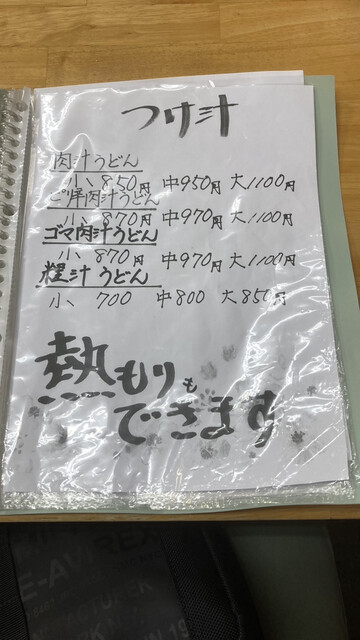 つけ汁
肉汁うどん
小 850円 中950円 大1100円
肉汁うどん
小 870円 中970円 大1100円
ゴマ肉汁うどん
小 870円 中970円 大1100円
糧汁うどん
小 700 中800 大850円
熱もりも
できます